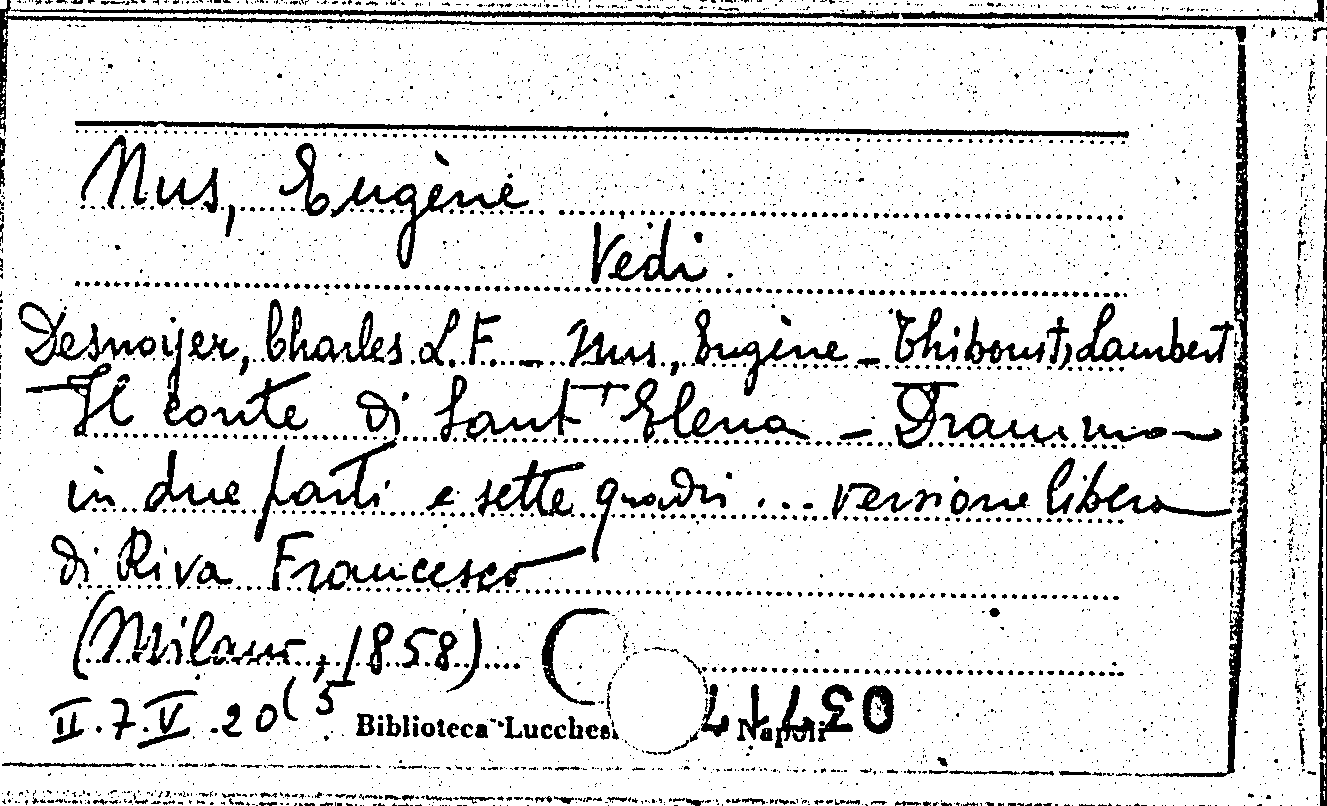 Nus, Eugène
Vedi.
Desnoyer, Charles L. F. - Nus, Eugène - Thiboust, Lambert
Il conte di Sant'Elena - Dramma
in due parti e sette quadri ... versione libera
di Riva Francesco
(Milano, 1858)
II.7.V.20(5
Biblioteca Lucchesi Napoli